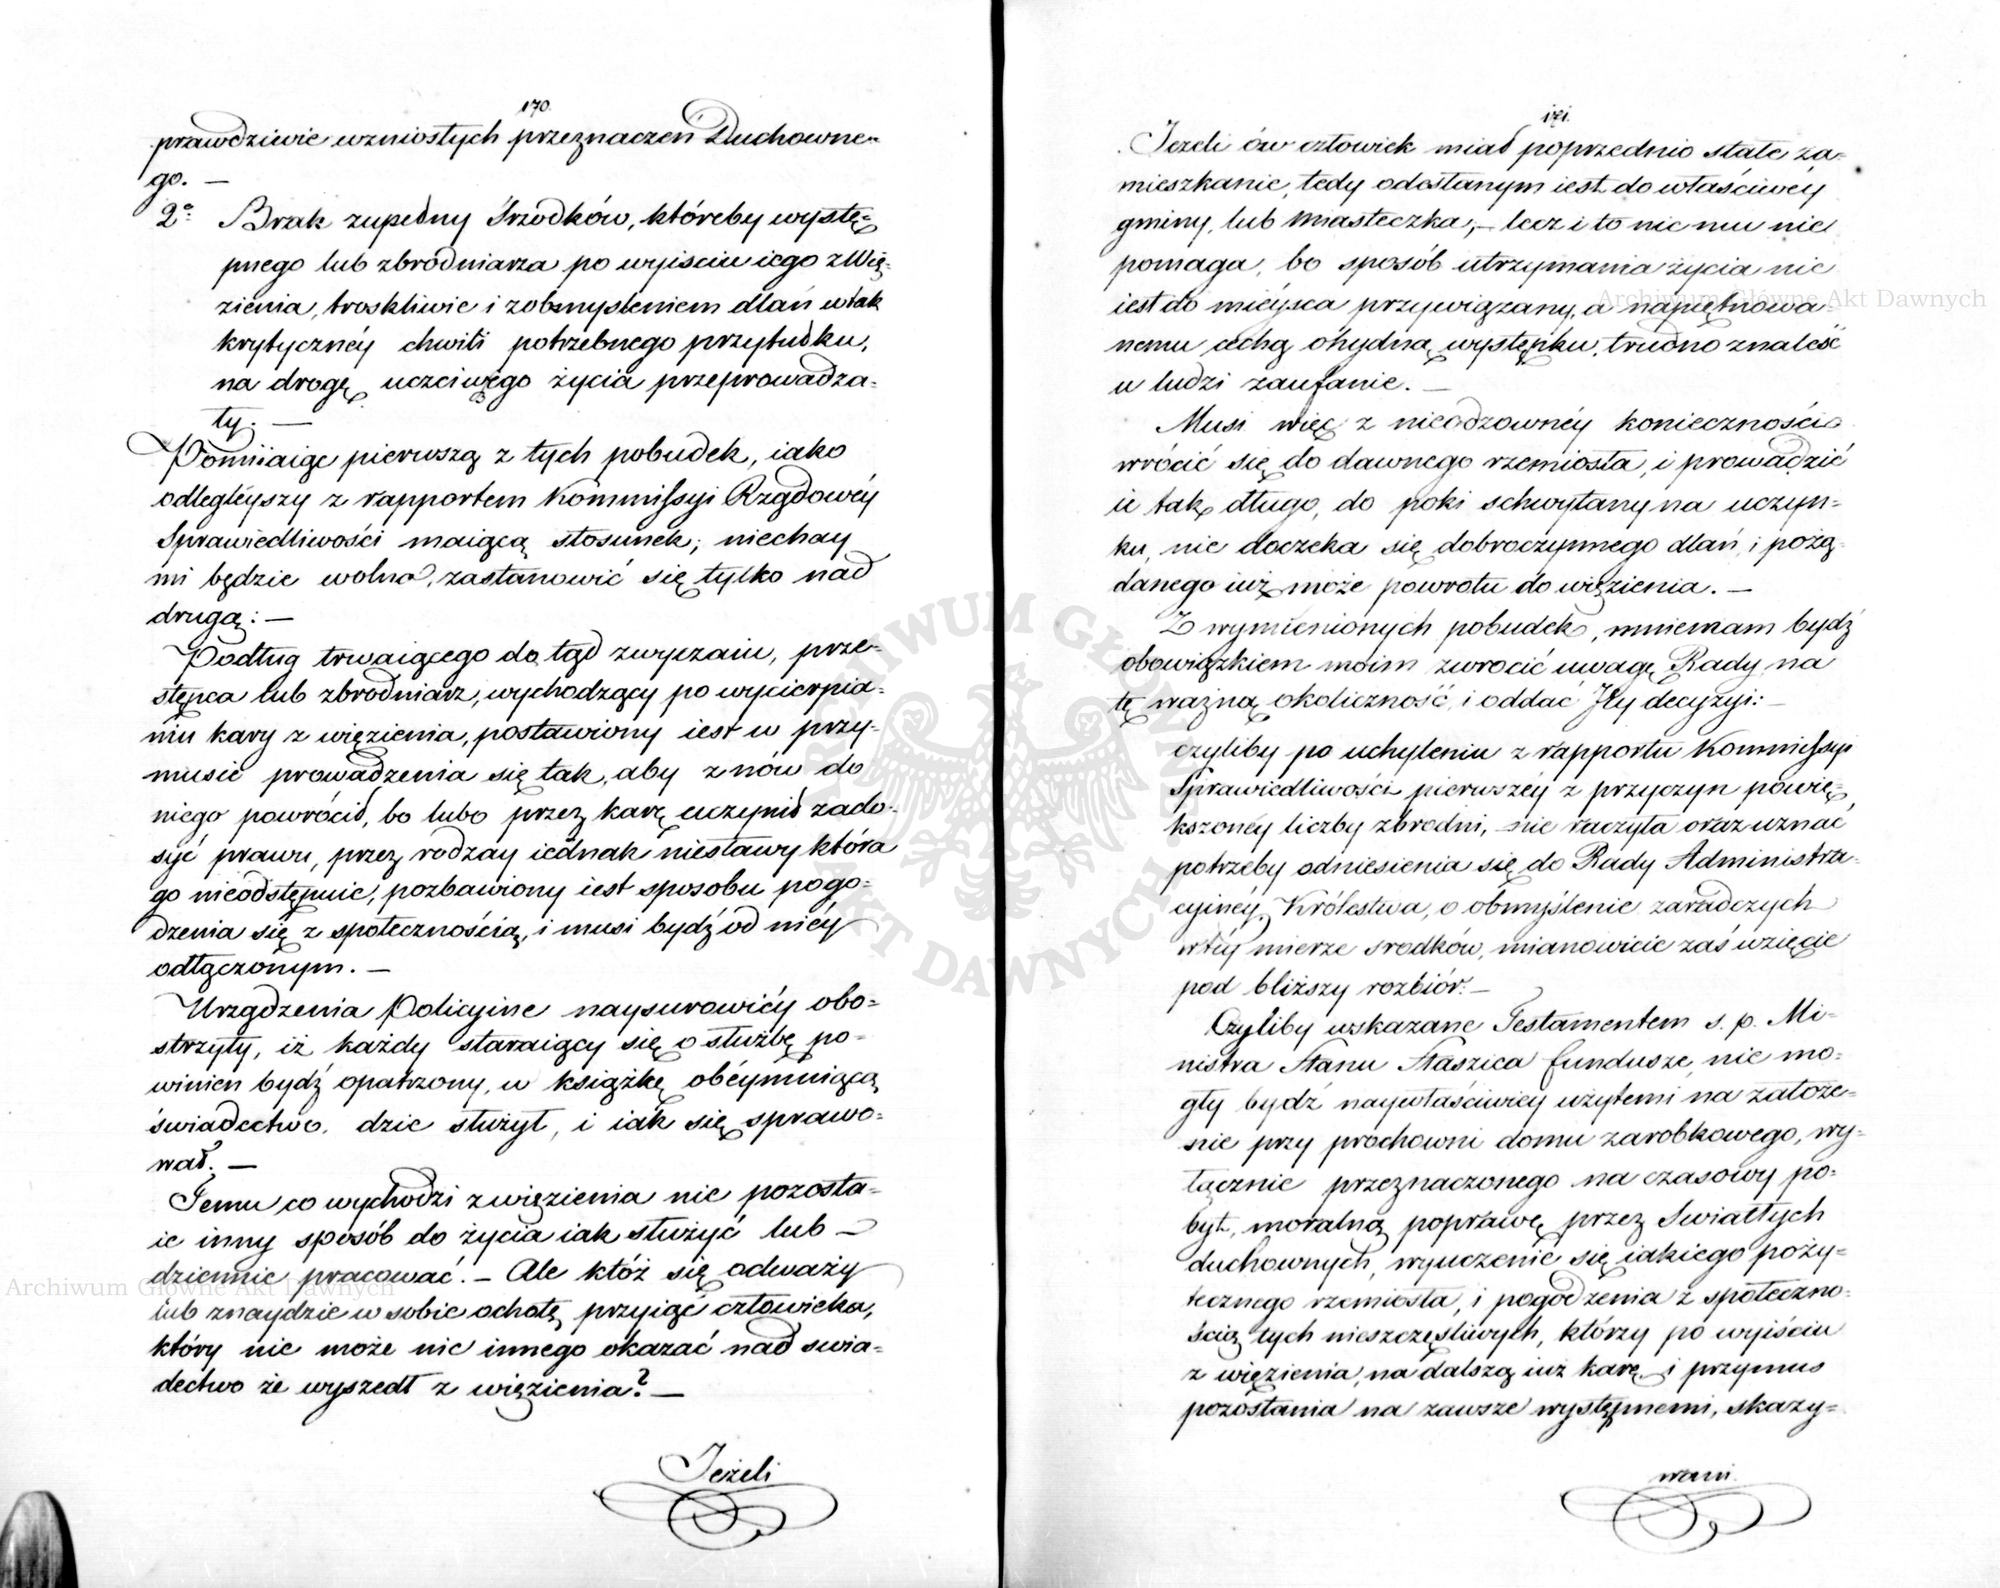 170.
prawdziwie wzniosłych przeznaczeń Duchowne-
go. —
2o: Brak zupełny Srzodków, któreby wystę-
pnego lub zbrodniarza po wyiściu iego z Wię-
zienia, troskliwie i z obmysleniem dlań w tak
krytycznéy chwili potrzebnego przytułku,
na drogę uczciwego życia przeprowadza-
ły. —
Pomiiaiąc pierwszą z tych pobudek, iako
odlegléyszy z rapportem Kommissyi Rządowéy
Sprawiedliwości maiącą stosunek; niechay
mi będzie wolno, zastanowić się tylko nad
drugą: —
Podług trwaiącego do tąd zwyczaiu, prze-
stępca lub zbrodniarz, wychodzący po wycierpia-
niu kary z więzienia, postawiony iest w przy-
musie prowadzenia się tak, aby znów do
niego powrócił, bo lubo przez karę uczynił zado-
syć prawu, przez rodzay iednak niesławy która
go nieodstępuie, pozbawiony iest sposobu pogo-
dzenia się z społecznością, i musi bydź od niéy
odłączonym. —
Urządzenia Policyine naysurowiéy obo-
strzyły, iż każdy staraiący się o służbę po-
winien bydź opatrzony, w książkę obéymuiącą
świadectwo, dzie służył, i iak się sprawo-
wał. —
Temu co wychodzi z więzienia nie pozosta-
ie inny sposób do życia iak służyć lub —
dziennie pracować. — Ale któż się odważy
lub znaydzie w sobie ochotę przyiąć człowieka,
który nie może nic innego okazać nad swia-
dectwo że wyszedł z więzienia? —
Jeżeli
171.
Jeżeli ów człowiek miał poprzednio stałe za-
mieszkanie, tedy odesłanym iest do właściwéy
gminy, lub miasteczka, — lecz i to nic mu nie
pomaga, bo sposób utrzymania życia nie
iest do mieysca przywiązany, a napiętnowa-
nemu cechą ohydną występku, trudno znaleść
u ludzi zaufanie. —
Musi więc z nieodzownéy konieczności
wrócić się do dawnego rzemiosła, i prowadzić
ie tak długo, do poki schwytany na uczyn-
ku, nie doczeka się dobroczynnego dlań, i pożą-
danego iuż może powrotu do więzienia. —
Z wymienionych pobudek, mniemam bydź
obowiązkiem moim zwrocić uwagę Rady na
tę ważną okoliczność, i oddać Jéy decyzyi: —
czyliby po uchyleniu z rapportu Kommissyi
Sprawiedliwości pierwszéy z przyczyn powię-
kszonéy liczby zbrodni, nie raczyła oraz uznać
potrzeby odniesienia się do Rady Administra-
cyinéy Królestwa, o obmyślenie zaradczych
w téy mierze srodków, mianowicie zaś wzięcie
pod bliższy rozbiór. —
Czyliby wskazane Testamentem s. p. Mi-
nistra Stanu Staszica fundusze, nie mo-
gły bydź naywłaściwiey użytemi na założe-
nie przy prochowni domu zarobkowego, wy-
łącznie przeznaczonego na czasowy po-
byt, moralną poprawę przez Swiatłych
duchownych, wyuczenie się iakiego poży-
tecznego rzemiosła, i pogodzenia z społeczno-
ścią tych nieszczęsliwych, którzy po wyiściu
z więzienia, na dalszą iuż karę i przymus
pozostania na zawsze występnemi, skazy-
wani.
Archiwum Główne Akt Dawnych
Archiwum Główne Akt Dawnych
ARCHIWUM GŁÓWNE AKT DAWNYCH